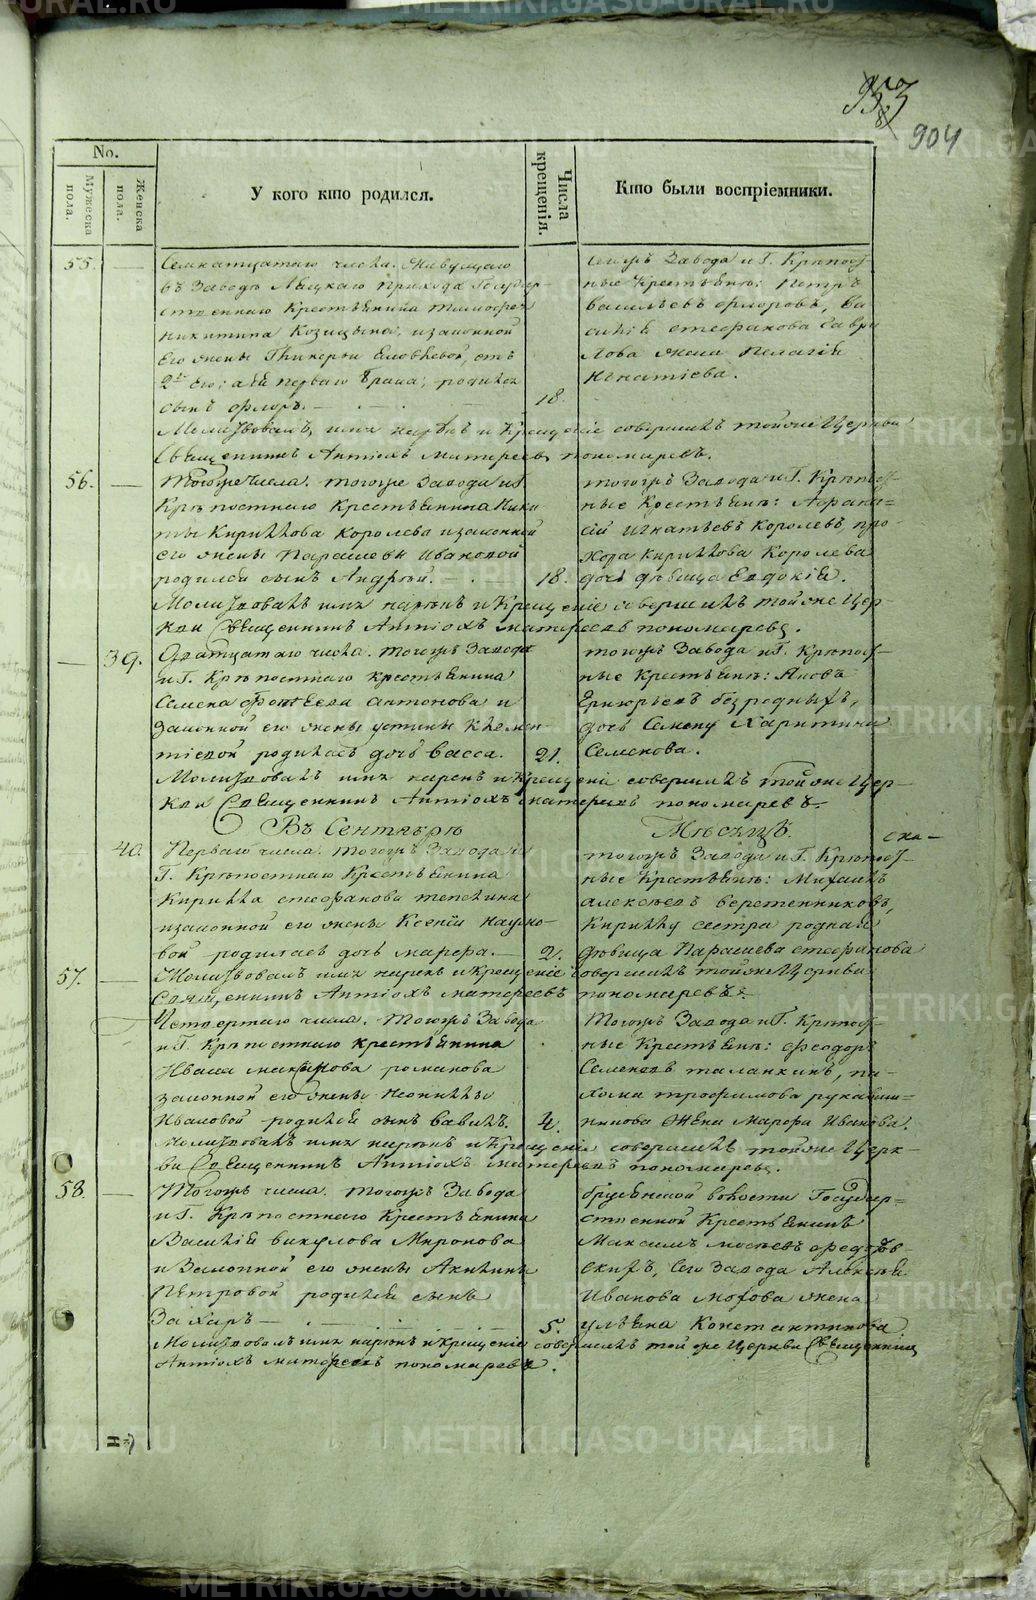 953
904
No.
Мужеска пола.
Женска пола.
У кого кто родился.
Числа крещенія.
Кто были воспріемники.
55.
Семнатцатаго числа. Живущаго
въ Заводѣ прихода Государ-
ственнаго Крестьянина Тимофея
никитина Козицына, и законной
его жены Гликерьи отъ
2го его; а ей перваго брака; родился
сынъ флоръ.
18.
Завода и Г. Крѣпост-
ные Крестьяне: Петръ
васильевъ флоровъ, ва
силій стефанова гаври
лова жена пелагія
Игнатіева.
Молитвовалъ, имя нарекъ и Крещеніе совершилъ тойже Церкви
Священникъ Антіохъ матвеевъ пономаревъ.
56.
Тогоже числа. тогоже Завода и Г.
Крѣпостнаго Крестьянина Ники
ты Кирилова Королева и законной
его жены Парасковьи Ивановой
родился сынъ Андрей.
18.
тогожъ Завода и Г. Крѣпост-
ные Крестьяне: Афана-
сій Игнатьевъ Королевъ, про-
хора Кирилова Королева
дочь дѣвица Евдокія.
Молитвовалъ имя нарекъ и Крещеніе совершилъ тойже Цер-
кви Священникъ Антіохъ матвеевъ пономаревъ.
39.
Дватцатаго числа. тогожъ Завода
и Г. Крѣпостнаго Крестьянина
Семена антонова и
Законной его жены устиньи Клемен-
тіевой родилась дочь васса.
21.
тогожъ Завода и Г. Крѣпост-
ные Крестьяне: Яковъ
Григорьевъ безродныхъ,
дочь Семену Харитина
Семенова.
Молитвовалъ имя нарекъ и Крещеніе совершилъ тойже Цер-
кви Священникъ Антіохъ матвеевъ пономаревъ.
Въ Сентябрѣ Мѣсяцѣ.
40.
Перваго числа. тогожъ Завода и
Г. Крѣпостнаго Крестьянина
Кирилла стефанова тепикина
и законной его жены Ксеніи Наумо-
вой родилась дочь марфа.
2.
тогожъ Завода и Г. Крѣпост-
ные Крестьяне: Михаилъ
алексеевъ берстенниковъ,
Кириллу сестра родная
дѣвица Парасковья стефанова
57.
Молитвовалъ имя нарекъ и Крещеніе совершилъ тойже Церкви
Священникъ Антіохъ матвеевъ пономаревъ.
Четвертаго числа. Тогожъ Завода
и Г. Крѣпостнаго Крестьянина
Ивана романова
законной его жены Неонилы
Ивановой родился сынъ вавилъ.
4.
Тогожъ Завода и Г. Крѣпост-
ные Крестьяне: Феодоръ
Семеновъ таланкинъ, па-
хома трофимова рукавиш-
никова Жена Марфа Иванова.
Молитвовалъ имя нарекъ и Крещеніе совершилъ тойже Церк-
ви Священникъ Антіохъ матвеевъ пономаревъ.
58.
Тогожъ числа. Тогожъ Завода
и Г. Крѣпостнаго Крестьянина
Василія викулова Миронова
и Законной его жены Акилины
Петровой родился сынъ
Захаръ
5.
волости Государ-
ственной Крестьянинъ
Максимъ
сего Завода Алексея
Иванова жена
ульяна Константинова
Молитвовалъ имя нарекъ и крещеніе совершилъ тойже Церкви Священникъ
Антіохъ матвеевъ пономаревъ.
METRIKI.GASO-URAL.RU